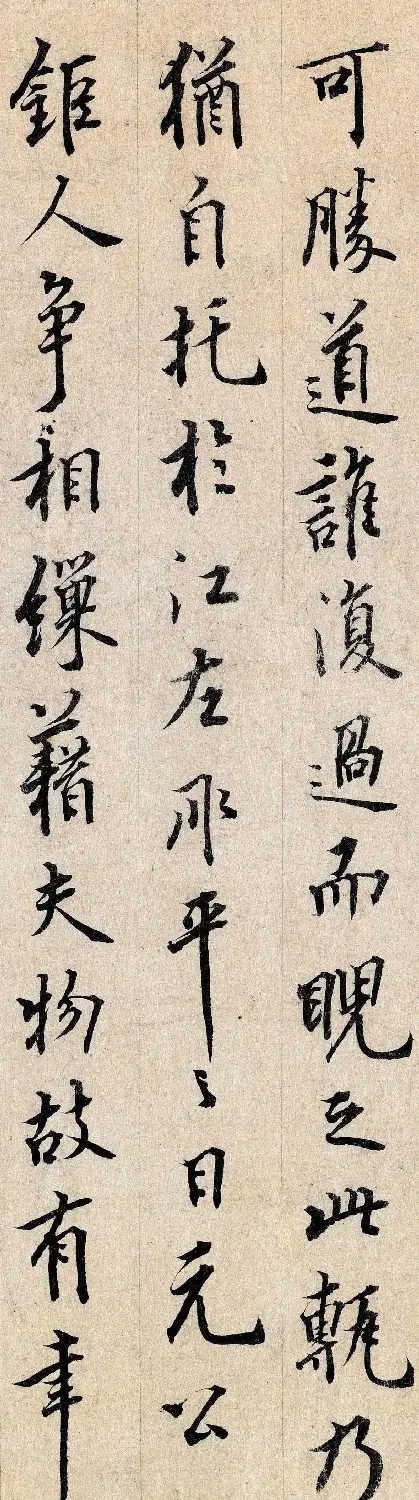 可勝道誰復過而睨之此甎乃
猶自托於江左升平之日元公
鉅人争相繅藉夫物故有幸